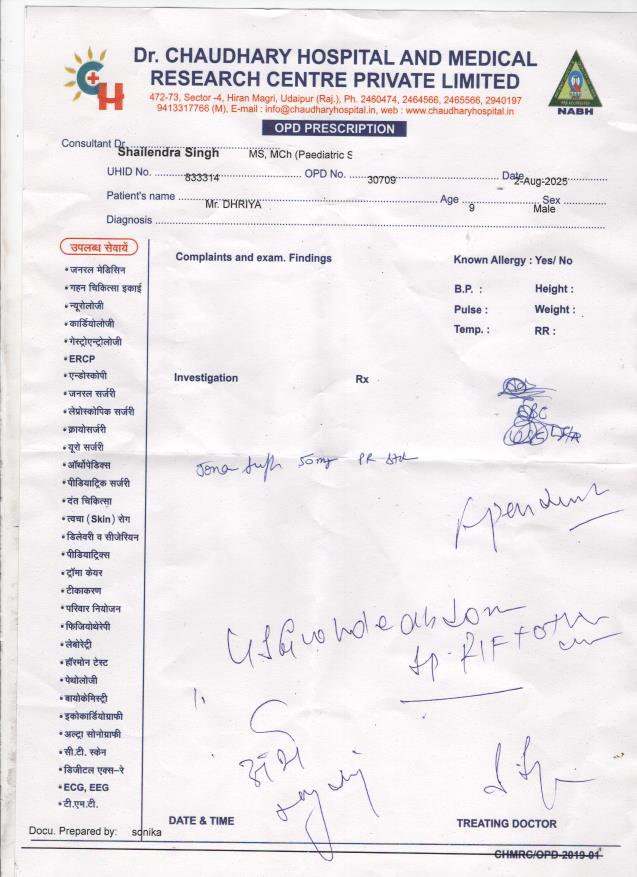 Dr. CHAUDHARY HOSPITAL AND MEDICAL
RESEARCH CENTRE PRIVATE LIMITED
472-73, Sector -4, Hiran Magri, Udaipur (Raj.), Ph. 2460474, 2464566, 2465566, 2940197
9413317766 (M), E-mail : info@chaudharyhospital.in, web : www.chaudharyhospital.in
NABH
OPD PRESCRIPTION
Consultant Dr. Shailendra Singh MS, MCh (Paediatric S
UHID No. 833314 OPD No. 30709 Date 2-Aug-2025
Patient's name Mr. DHRIYA Age 9 Sex Male
Diagnosis
उपलब्ध सेवायें
Complaints and exam. Findings
Known Allergy : Yes/ No
B.P. : Height :
Pulse : Weight :
Temp. : RR :
Investigation Rx
• जनरल मेडिसिन
• गहन चिकित्सा इकाई
• न्यूरोलोजी
• कार्डियोलोजी
• गेस्ट्रोएन्ट्रोलोजी
• ERCP
• एन्डोस्कोपी
• जनरल सर्जरी
• लेप्रोस्कोपिक सर्जरी
• क्रायोसर्जरी
• यूरो सर्जरी
• ऑर्थोपेडिक्स
• पीडियाट्रिक सर्जरी
• दंत चिकित्सा
• त्वचा (Skin) रोग
• डिलेवरी व सीजेरियन
• पीडियाट्रिक्स
• ट्रॉमा केयर
• टीकाकरण
• परिवार नियोजन
• फिजियोथेरेपी
• लेबोरेट्री
• हॉरमोन टेस्ट
• पेथोलोजी
• बायोकेमिस्ट्री
• इकोकार्डियोग्राफी
• अल्ट्रा सोनोग्राफी
• सी.टी. स्केन
• डिजीटल एक्स-रे
• ECG, EEG
• टी.एम.टी.
50mg PR
RIF
DATE & TIME
TREATING DOCTOR
Docu. Prepared by: sonika
CHMRC/OPD-2019-01